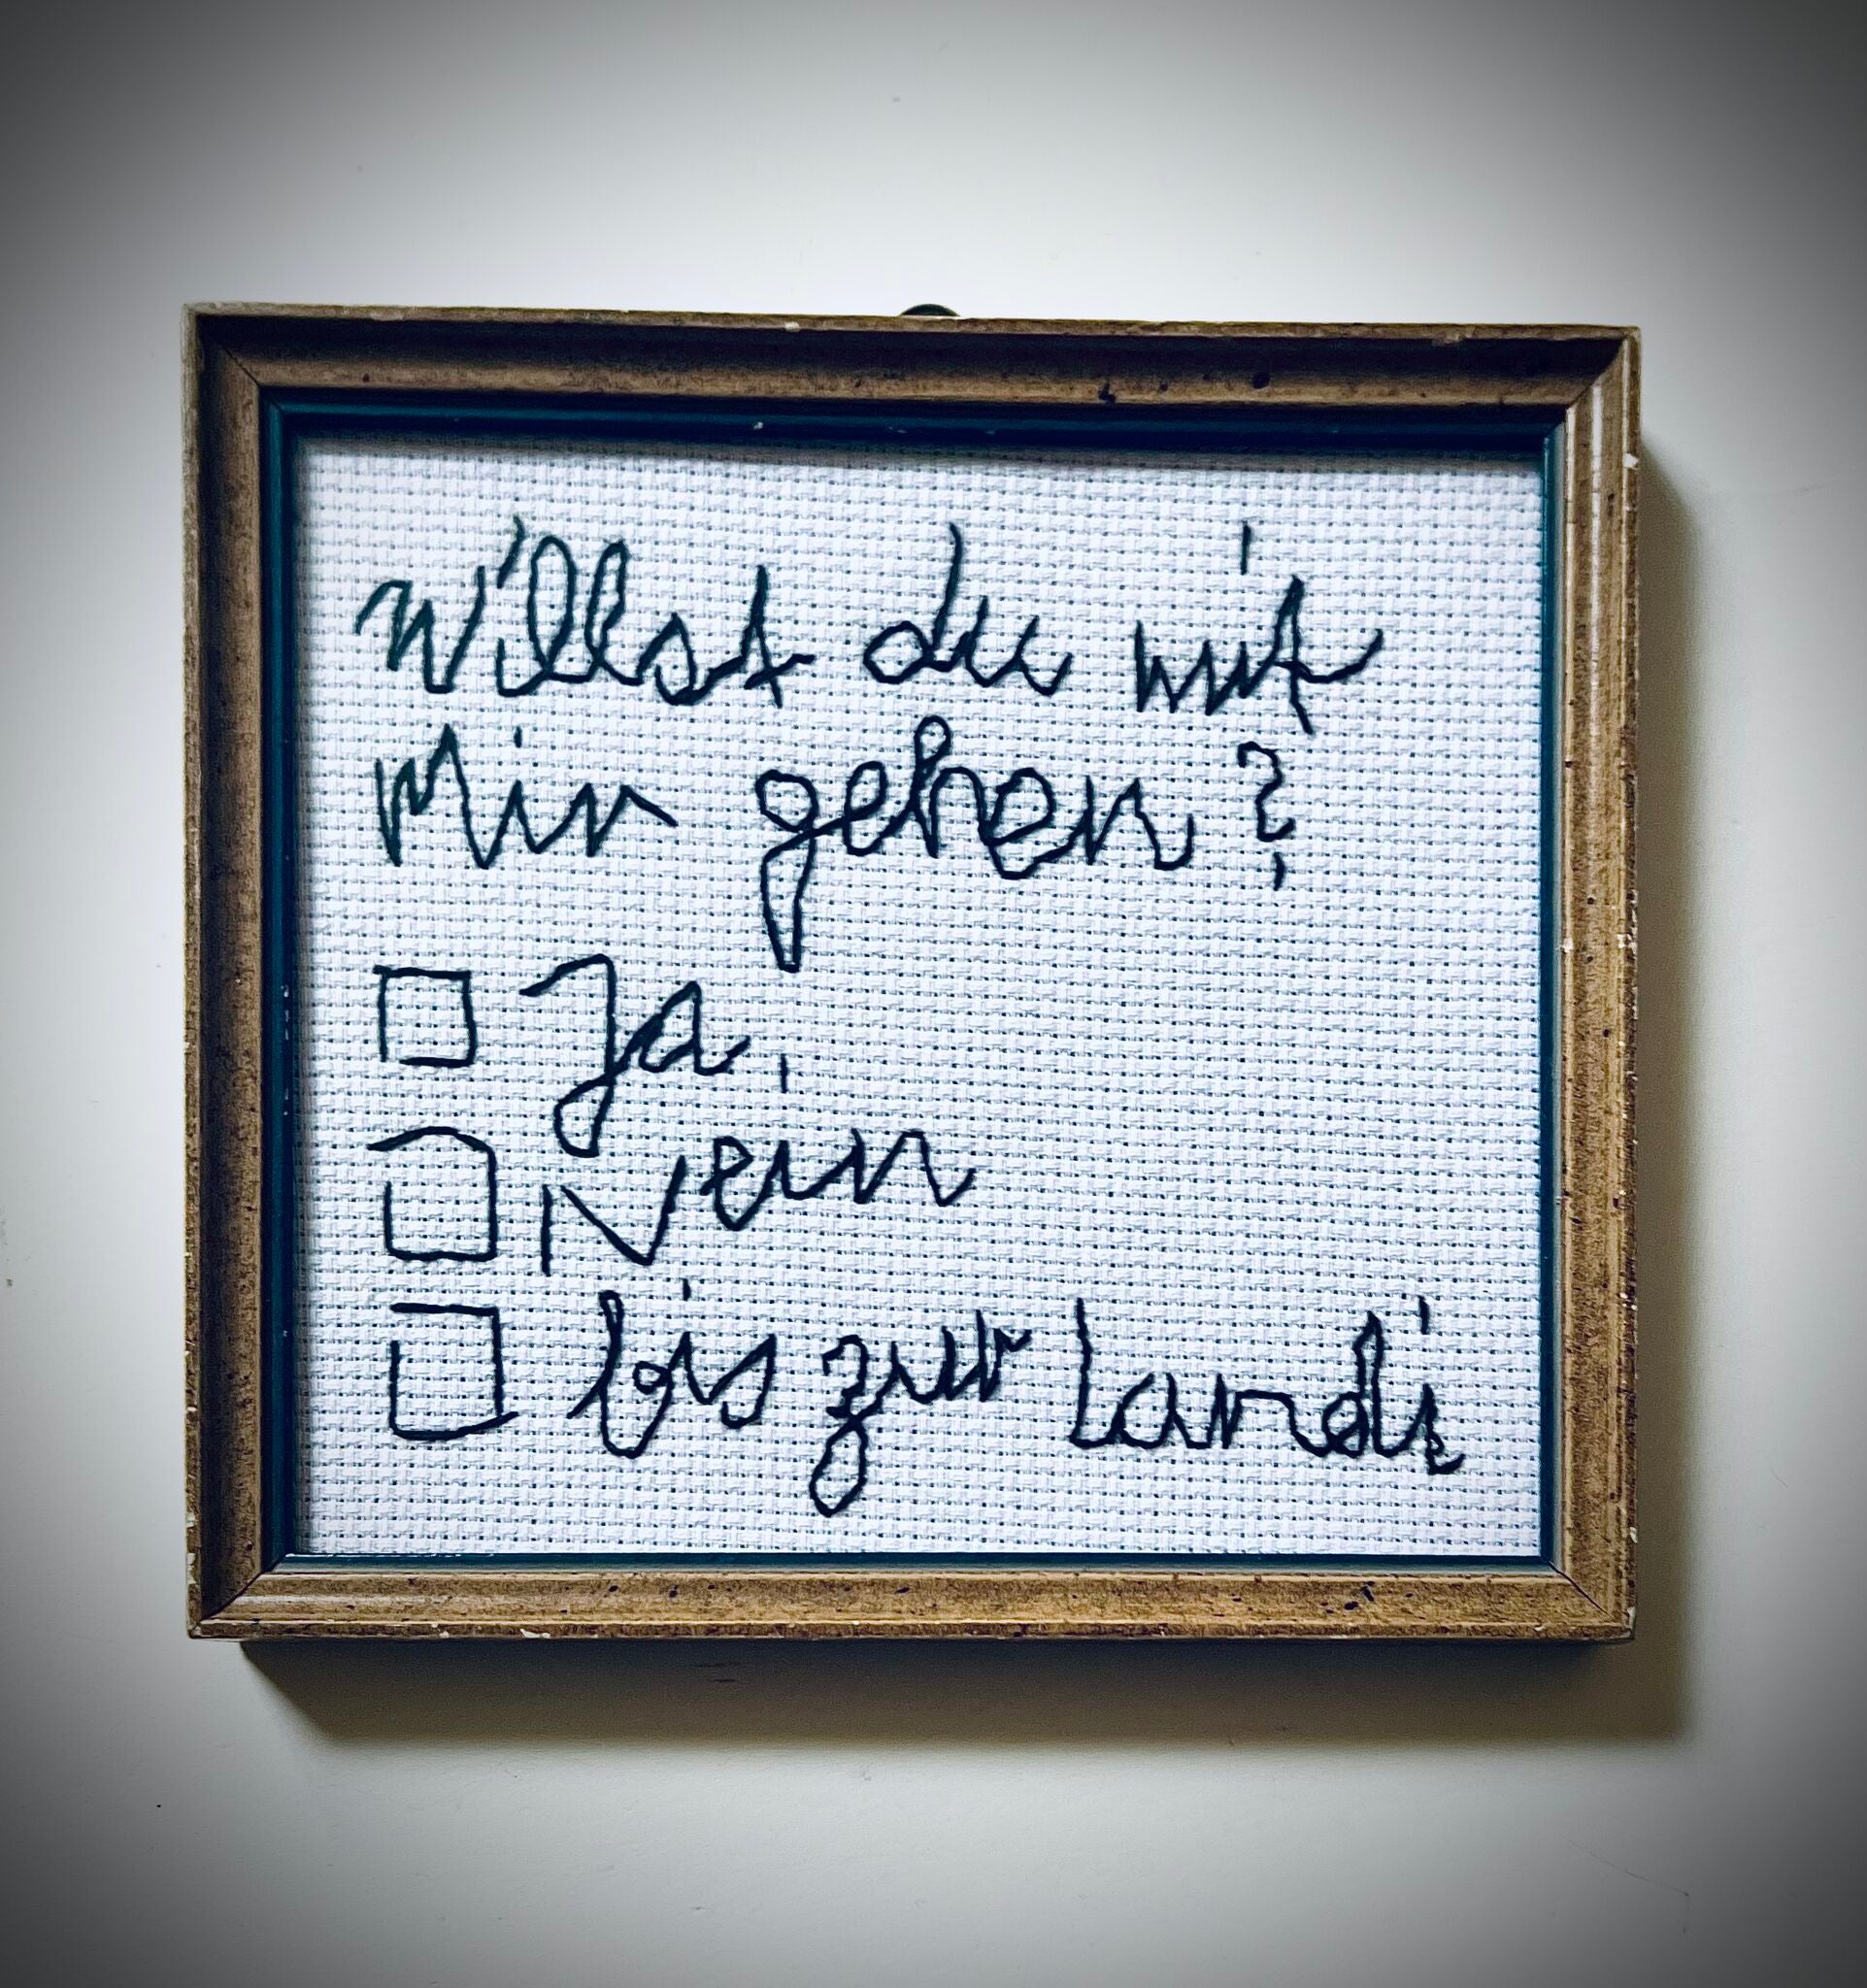 Willst du mit
Mir gehen?
☐ Ja,
☐ Nein
☐ bis zur Landi